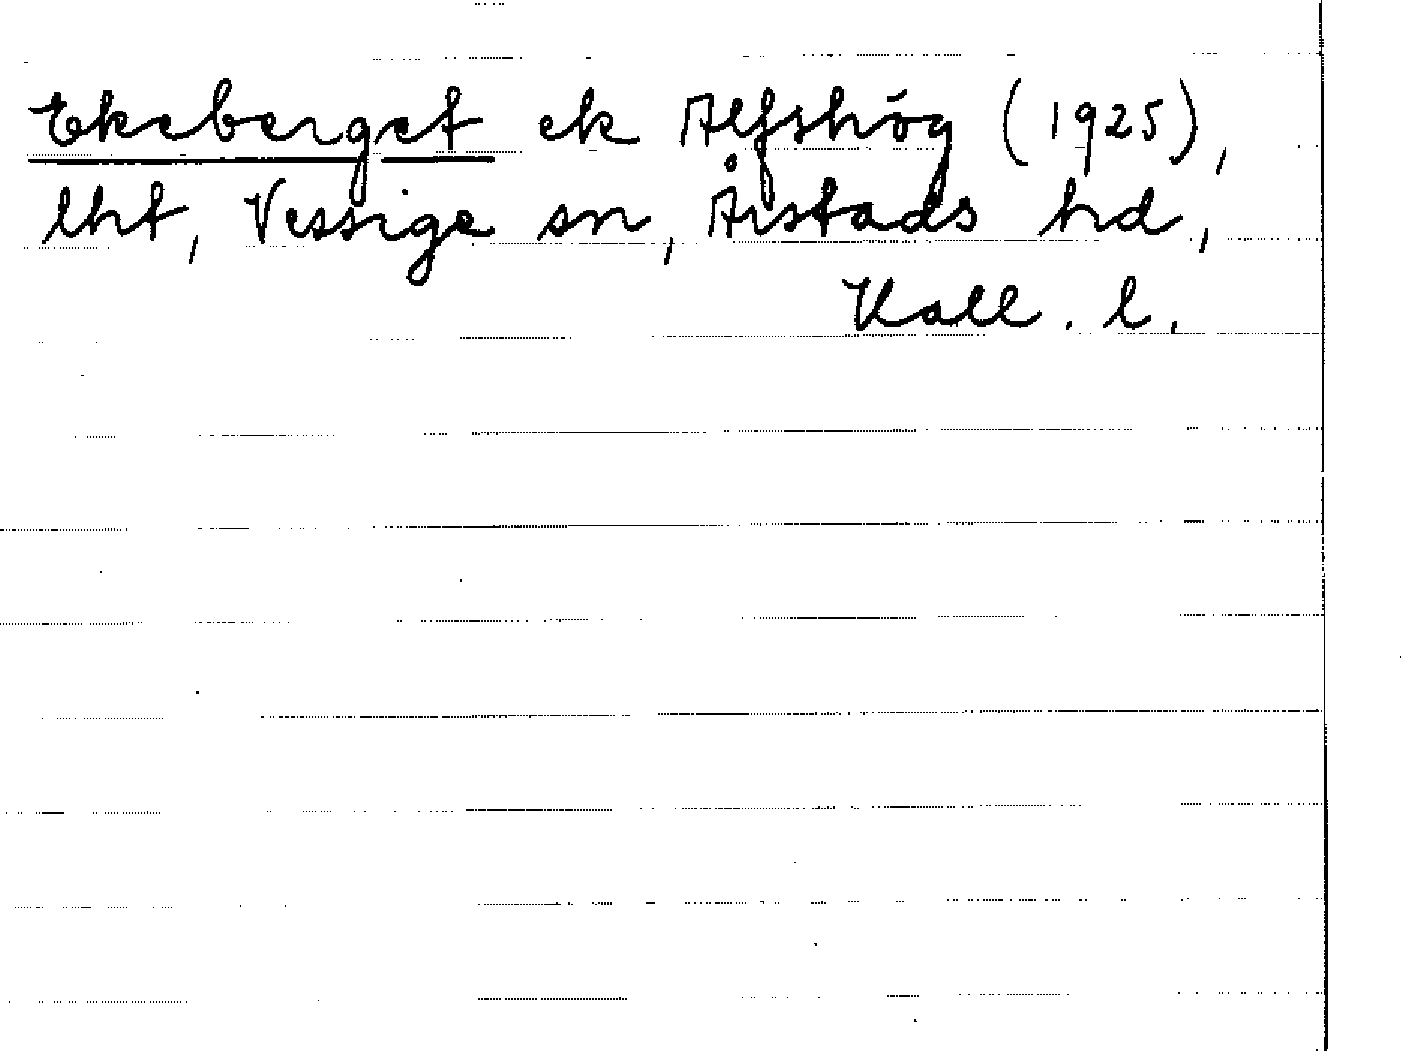 Ekeberget ek Alfshög (1925),
lht, Vessige sn, Årstads hd,
Hall. l.